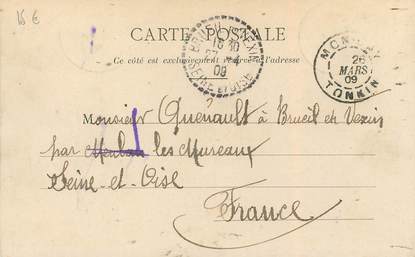 15 €
CARTE POSTALE
Ce côté est exclusivement réservé à l'adresse
BRUEIL EN VEXIN
16 30
09
SEINE ET OISE
MONCAY
26
MARS
09
TONKIN
Monsieur Quénault à Brueil en Vexin
par Meulan les Mureaux
Seine-et-Oise
France